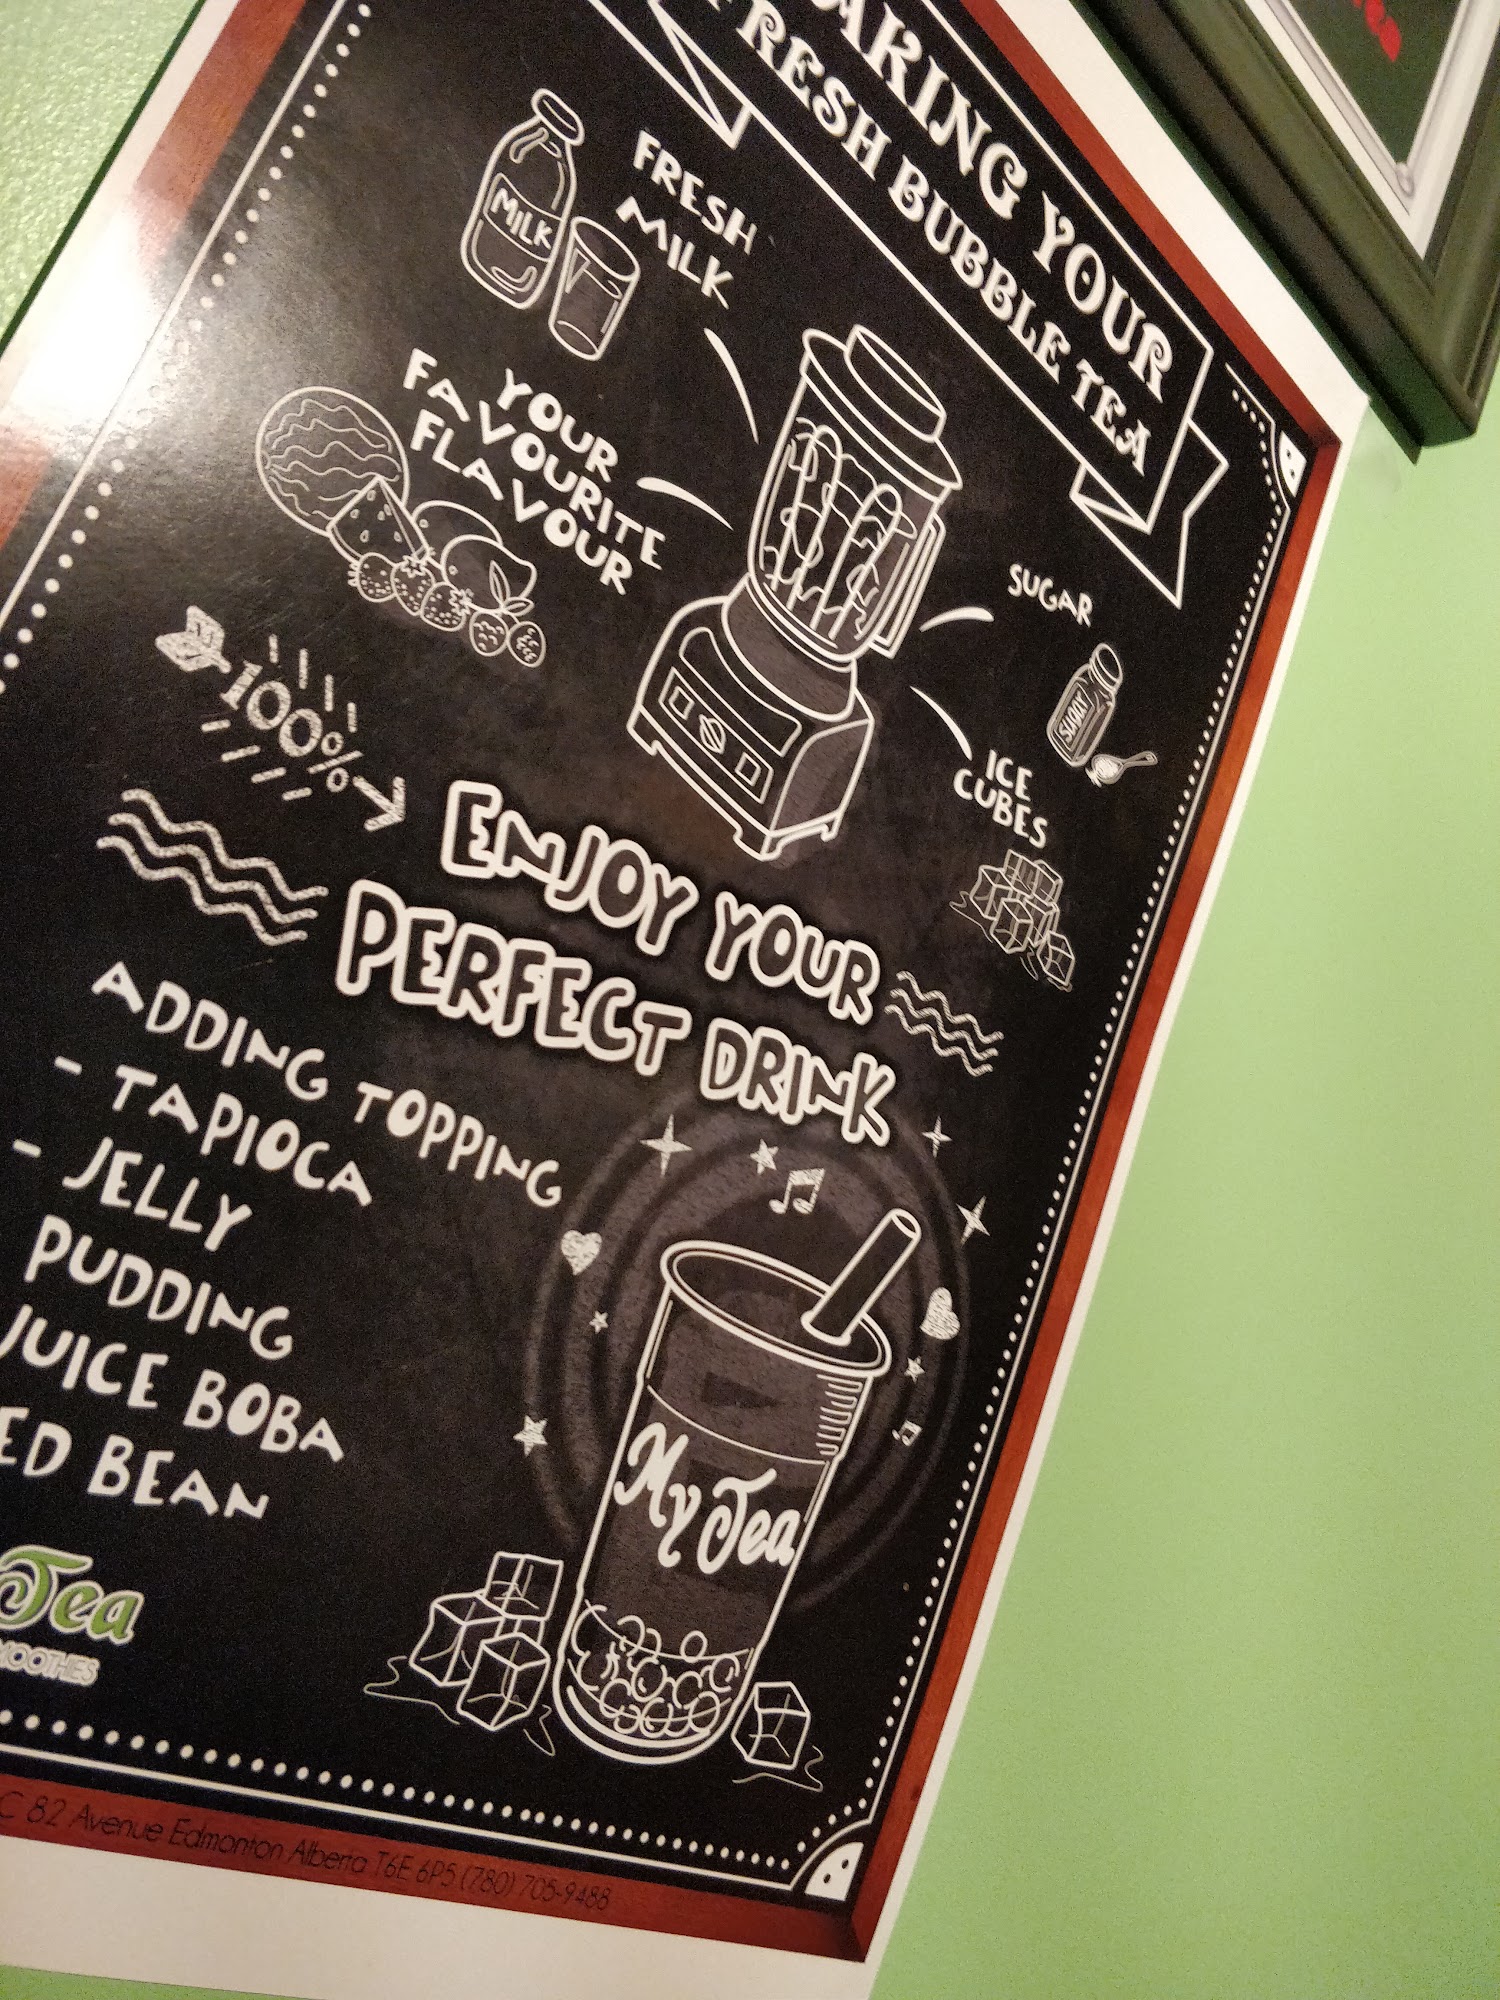 AKING YOUR
FRESH BUBBLE TEA
FRESH
MILK
MILK
YOUR
FAVOURITE
FLAVOUR
SUGAR
ICE
CUBES
100%
ENJOY YOUR
PERFECT DRINK
ADDING TOPPING
- TAPIOCA
- JELLY
PUDDING
JUICE BOBA
ED BEAN
My Tea
Tea
MOOTHIES
C 82 Avenue Edmonton Alberta T6E 6P5 (780) 705-9488